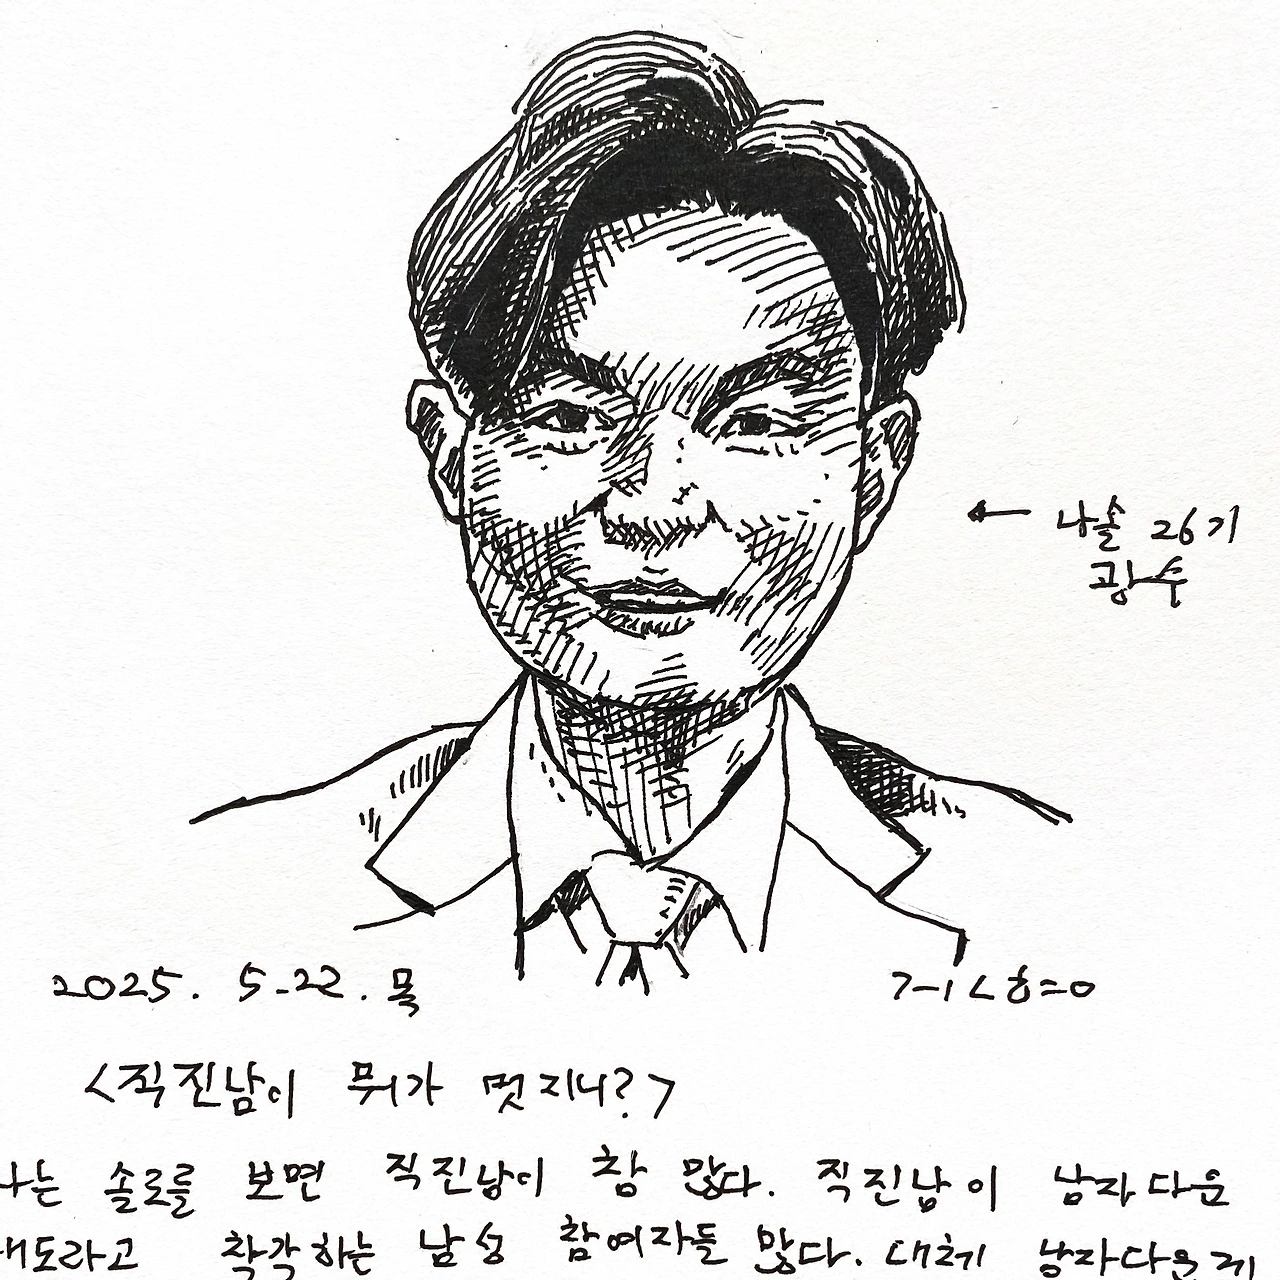 ← 나솔 26기
광수
2025. 5.22. 목
<직진남이 뭐가 멋지니?>
나는 솔로를 보면 직진남이 참 많다. 직진남이 남자다운
태도라고 착각하는 남성 참여자들 많다. 대체 남자다운게